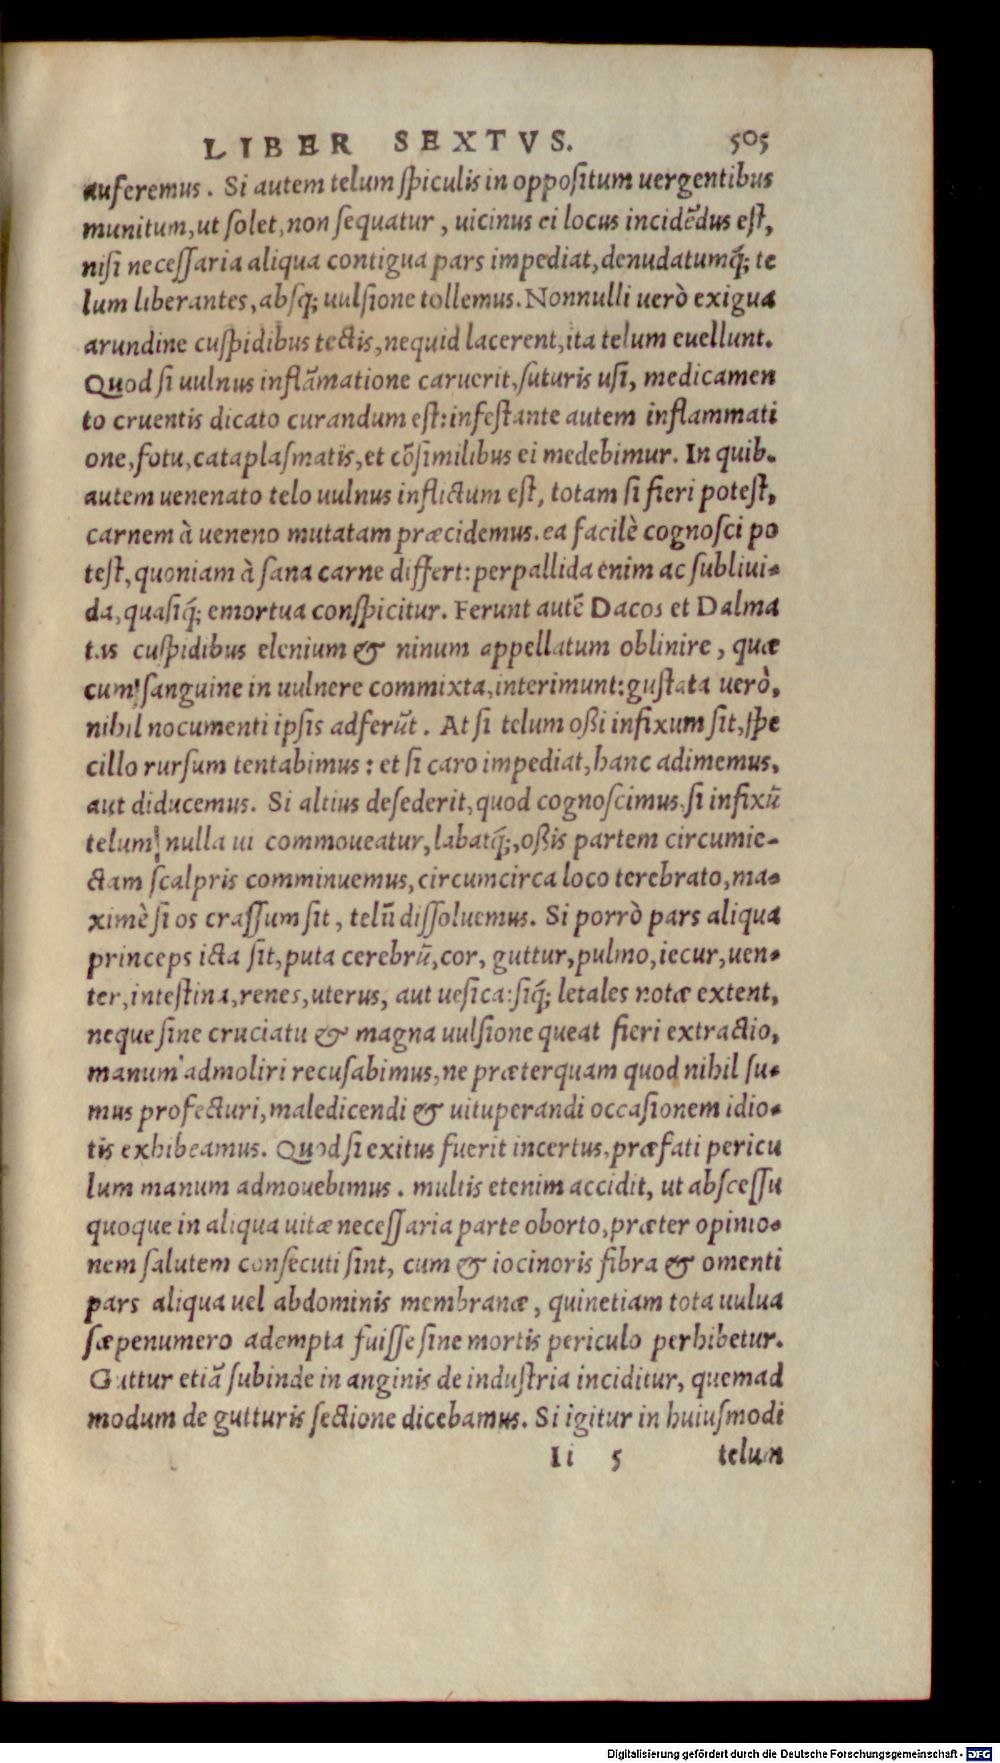 LIBER SEXTVS. 505
auferemus. Si autem telum ſpiculis in oppoſitum uergentibus
munitum, ut ſolet, non ſequatur, uicinus ei locus incidẽdus eſt,
niſi neceſſaria aliqua contigua pars impediat, denudatumq́; te
lum liberantes, abſq; uulſione tollemus. Nonnulli uerò exigua
arundine cuſpidibus tectis, nequid lacerent, ita telum euellunt.
Quod ſi uulnus inflãmatione caruerit, ſuturis uſi, medicamen
to cruentis dicato curandum eſt: infeſtante autem inflammati
one, fotu, cataplaſmatis, et cõſimilibus ei medebimur. In quib.
autem uenenato telo uulnus inflictum eſt, totam ſi fieri poteſt,
carnem à ueneno mutatam præcidemus. ea facilè cognoſci po
teſt, quoniam à ſana carne differt: perpallida enim ac ſubliui-
da, quaſiq́; emortua conſpicitur. Ferunt autẽ Dacos et Dalma
tas cuſpidibus elenium & ninum appellatum oblinire, quæ
cum ſanguine in uulnere commixta, interimunt: guſtata uerò,
nihil nocumenti ipſis adferũt. At ſi telum oßi infixum ſit, ſpe
cillo rurſum tentabimus: et ſi caro impediat, hanc adimemus,
aut diducemus. Si altius deſederit, quod cognoſcimus, ſi infixũ
telum nulla ui commoueatur, labatq́;, oßis partem circumie-
ctam ſcalpris comminuemus, circumcirca loco terebrato, ma-
ximè ſi os craſſum ſit, telũ diſſoluemus. Si porrò pars aliqua
princeps icta ſit, puta cerebrũ, cor, guttur, pulmo, iecur, uen-
ter, inteſtina, renes, uterus, aut ueſica: ſiq́; letales notæ extent,
neque ſine cruciatu & magna uulſione queat fieri extractio,
manum admoliri recuſabimus, ne præterquam quod nihil ſu-
mus profecturi, maledicendi & uituperandi occaſionem idio-
tis exhibeamus. Quod ſi exitus fuerit incertus, præfati pericu
lum manum admouebimus. multis etenim accidit, ut abſceſſu
quoque in aliqua uitæ neceſſaria parte oborto, præter opinio-
nem ſalutem conſecuti ſint, cum & iocinoris fibra & omenti
pars aliqua uel abdominis membranæ, quinetiam tota uulua
ſæpenumero adempta fuiſſe ſine mortis periculo perhibetur.
Guttur etiã ſubinde in anginis de induſtria inciditur, quemad
modum de gutturis ſectione dicebamus. Si igitur in huiuſmodi
Ii 5 telum
Digitalisierung gefördert durch die Deutsche Forschungsgemeinschaft - DFG